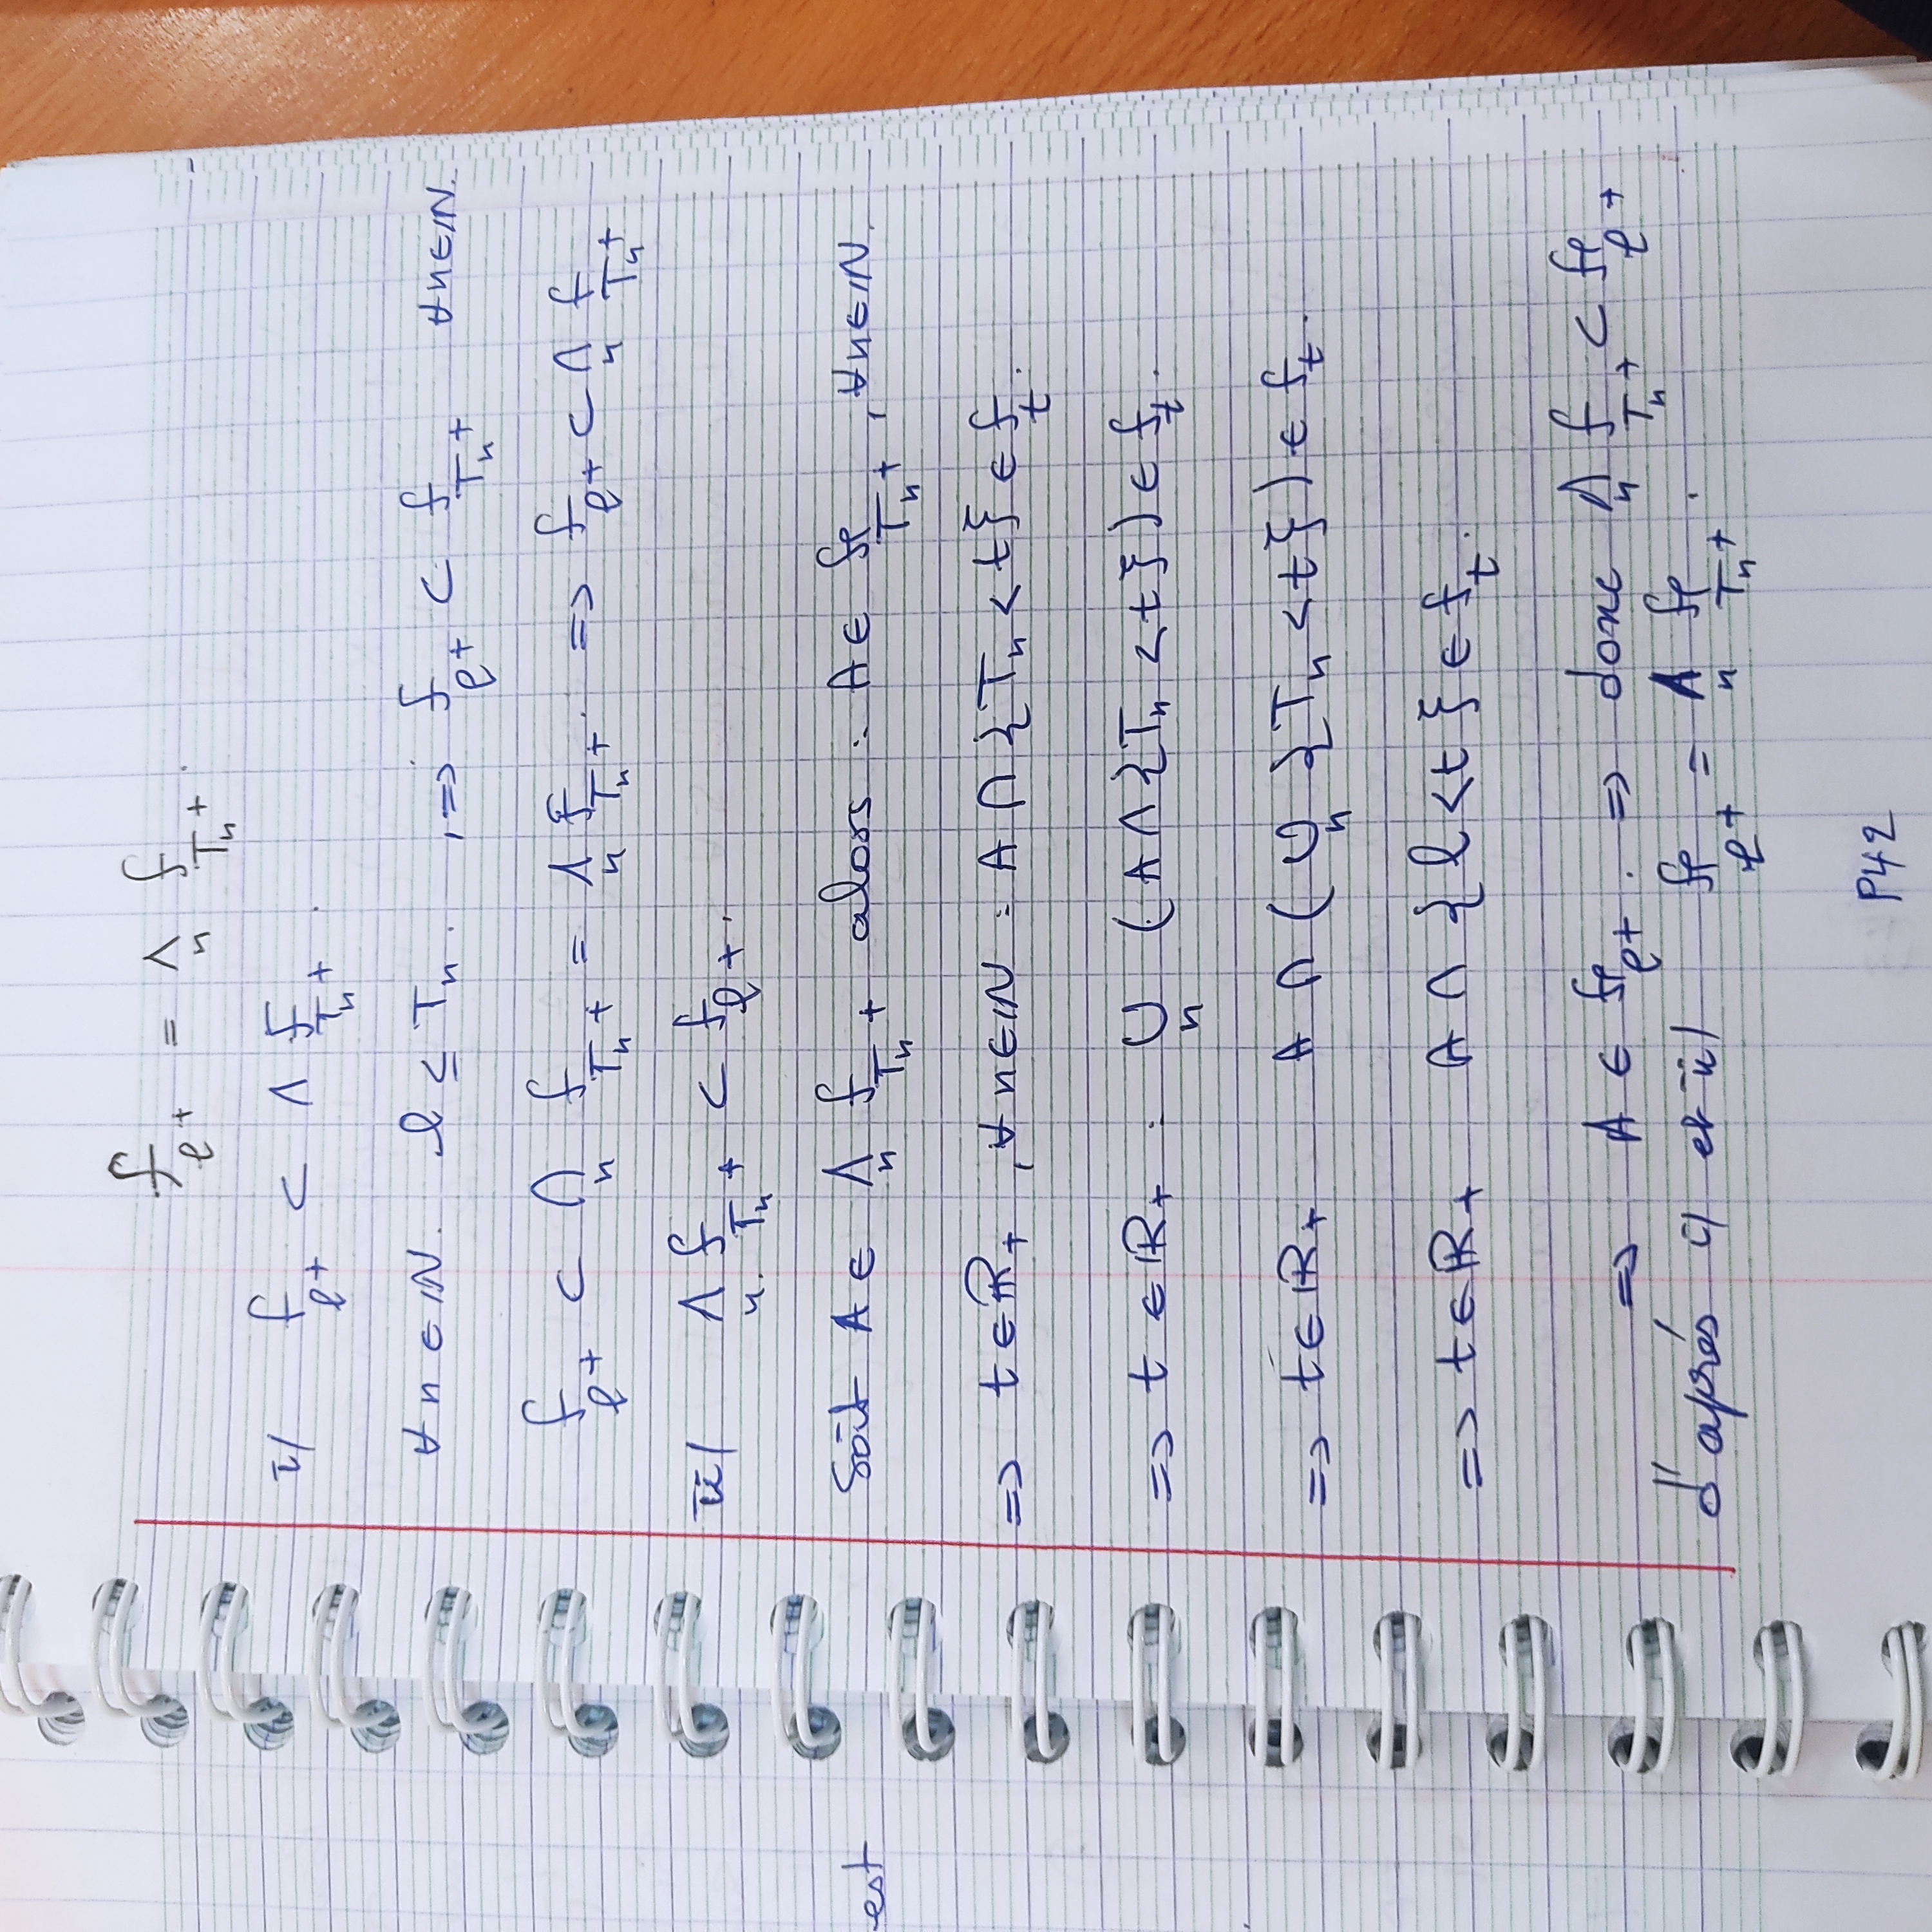 f_{l^+} = ∧_n f_{T_n^+}.
i/ f_{l^+} ⊂ ∧ f_{T_n^+}.
∀n∈ℕ. l ≤ T_n. , => f_{l^+} ⊂ f_{T_n^+} ∀n∈ℕ.
f_{l^+} ⊂ ∩_n f_{T_n^+} = ∧_n f_{T_n^+}. => f_{l^+} ⊂ ∧_n f_{T_n^+}
ii/ ∧_n. f_{T_n^+} ⊂ f_{l^+}.
est
Soit A ∈ ∧_n f_{T_n^+} alors : A ∈ f_{T_n^+}, ∀n∈ℕ.
=> t ∈ ℝ_+ , ∀n∈ℕ : A ∩ {T_n < t} ∈ f_t.
=> t ∈ ℝ_+ : ∪_n (A ∩ {T_n < t}) ∈ f_t.
=> t ∈ ℝ_+ A ∩ (∪_n {T_n < t}) ∈ f_t.
=> t ∈ ℝ_+ A ∩ {l < t} ∈ f_t.
=> A ∈ f_{l^+}. => donc ∧_n f_{T_n^+} ⊂ f_{l^+}
d'aprés i/ et ii/ f_{l^+} = ∧_n f_{T_n^+}.
P42